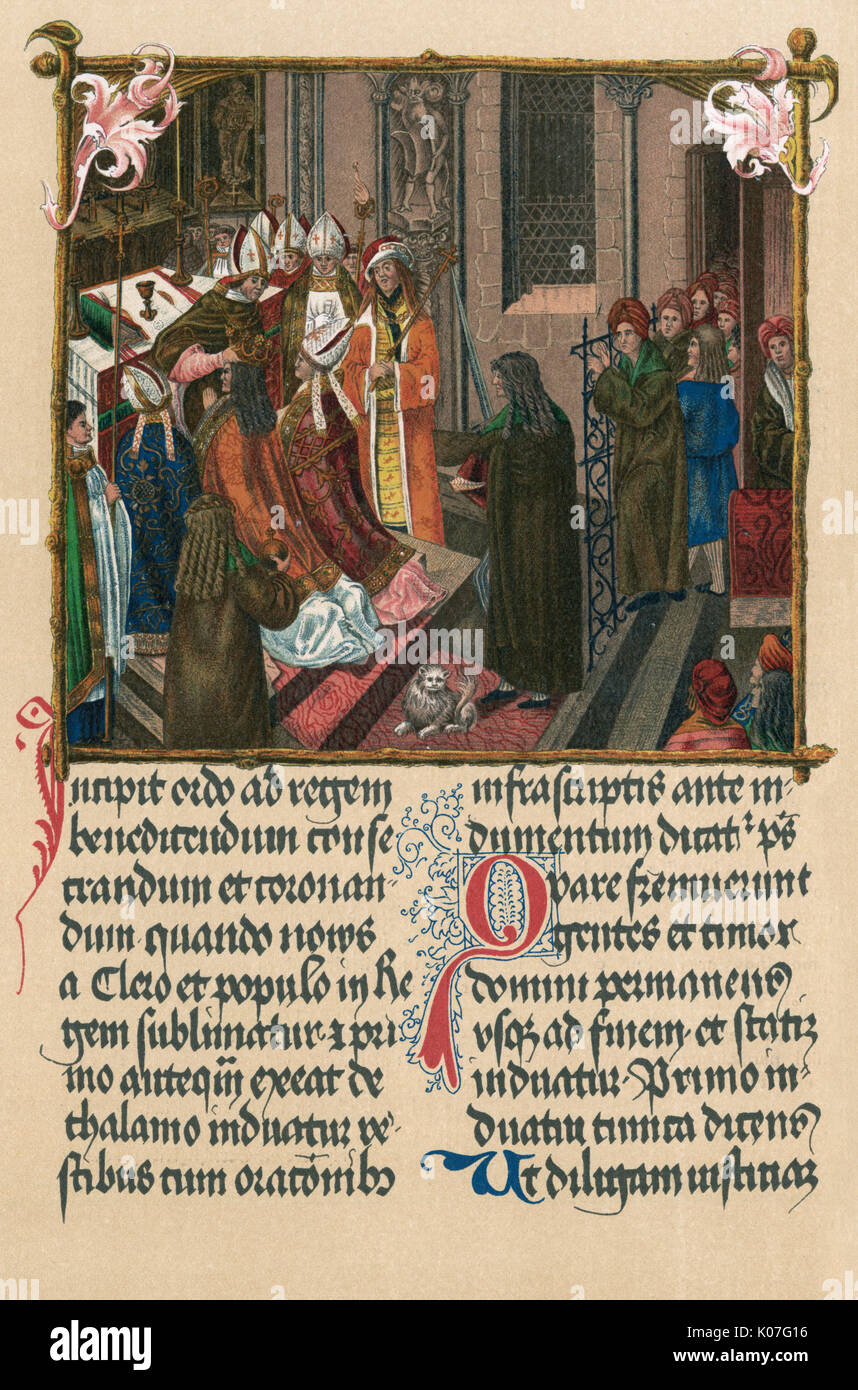 Incipit ordo ad regem
benedicendum conse
crandum et coronan-
dum quando novus
a Clero et populo in Re
gem sublimatur. & pri
mo anteqm̃ exeat de
thalamo induatur ve-
stibus cum oratõnibꝫ
infrascriptis ante in-
dumentum dicatr ps
Quare fremuerunt
gentes et timor
domini permanens
vsqꝫ ad finem et statiz
induatur. Primo in-
duatur tunica dicens
Ut diligam iusticiaz
alamy
Image ID: K07G16
www.alamy.com